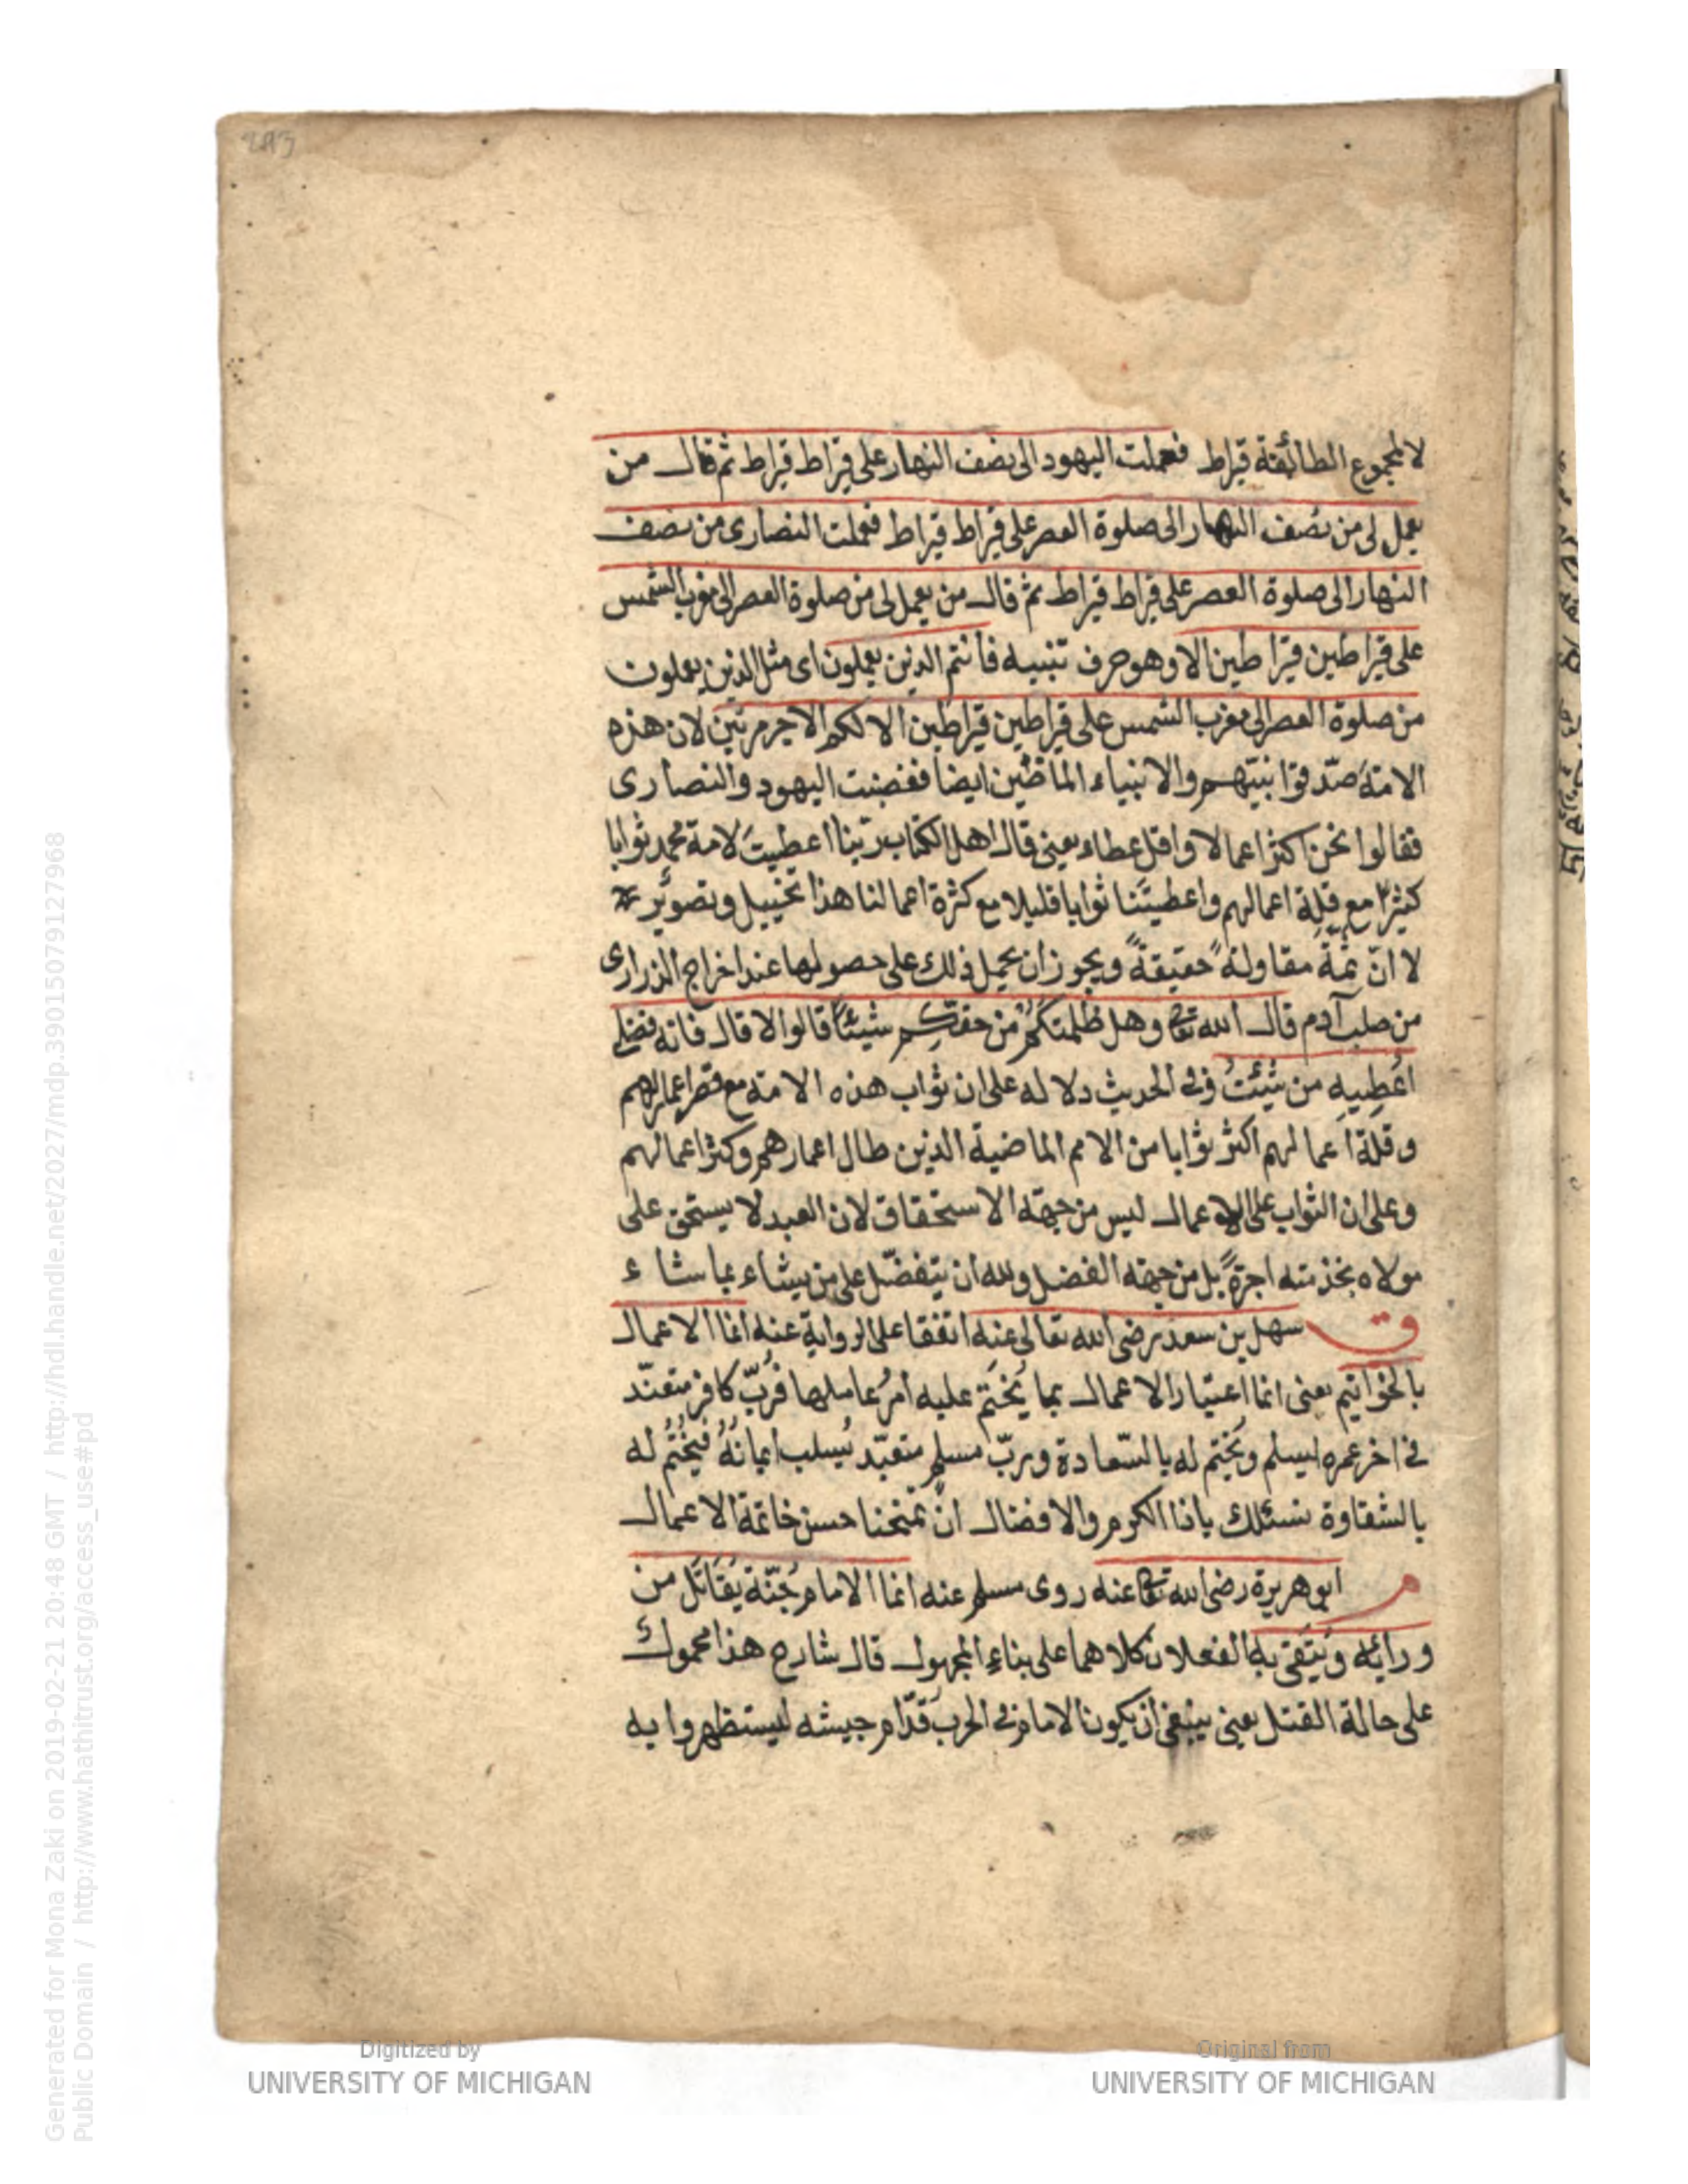 293
لا لمجموع الطائفة قيراط فعملت اليهود الى نصف النهار على قيراط قيراط ثم قال من
يعمل لى من نصف النهار الى صلوة العصر على قيراط قيراط فعملت النصارى من نصف
النهار الى صلوة العصر على قيراط قيراط ثم قال من يعمل لى من صلوة العصر الى مغرب الشمس
على قيراطين قيراطين الا وهو حرف تنبيه فانتم الذين يعملون اى مثل الذين يعملون
من صلوة العصر الى مغرب الشمس على قيراطين قيراطين الا لكم الاجر مرتين لان هذه
الامة صدّقوا بنبيّهم والانبياء الماضين ايضا فغضبت اليهود والنصارى
فقالوا نحن اكثر اعمالا واقل عطاء يعنى قال اهل الكتاب ربّنا اعطيتَ لامة محمد ثوابا
كثيرًا مع قلّة اعمالهم واعطيتَنا ثوابا قليلا مع كثرة اعمالنا هذا تخييل وتصوير
لا انّ ثمّةَ مقاولةً حقيقةً ويجوز ان يحمل ذلك على حصولها عند اخراج الذرارى
من صلب آدم قال الله تعا وهل ظلمتكم من حقكم شيئًا قالوا لا قال فانه فضلى
اُعْطِيهِ من شئتُ وفى الحديث دلالة على ان ثواب هذه الامة مع قصر اعمارهم
وقلة اعمالهم اكثر ثوابا من الامم الماضية الذين طال اعمارهم وكثر اعمالهم
وعلى ان الثواب على الاعمال ليس من جهة الاستحقاق لان العبد لا يستحق على
مولاه بخذمته اجرةً بل من جهة الفضل ولله ان يتفضّل على من يشاء بما شاء
ق سهل بن سعد رضى الله تعالى عنه اتفقا على الرواية عنه انما الاعمال
بالخواتيم يعنى انما اعتبار الاعمال بما يُختَم عليه امرُ عاملها فرُبّ كافر متعنّد
فى اخر عمره ليسلم ويُختم له بالسّعادة وربّ مسلم متعبّد يُسلب ايمانَهُ فيُخْتَمُ له
بالشقاوة نسئلك ياذا الكرم والافضال ان تمنحنا حسن خاتمة الاعمال
م ابو هريرة رضى الله تعا عنه روى مسلم عنه انما الامام جُنّة يُقَاتَل من
ورائه ويُتّقى به الفعلان كلاهما على بناء المجهول قال شارح هذا محمول
على حالة القتل يعنى ينبغى ان يكون الامام فى الحرب قدّام جيشه ليستظهروا به
Digitized by
UNIVERSITY OF MICHIGAN
Original from
UNIVERSITY OF MICHIGAN
Generated for Mona Zaki on 2019-02-21 20:48 GMT / http://hdl.handle.net/2027/mdp.39015079127968
Public Domain / http://www.hathitrust.org/access_use#pd